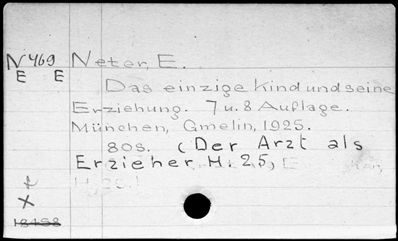 N 469 Neter, E.
E E
Das einzige Kind und seine
Erziehung. 7 u. 8 Auflage.
München, Gmelin, 1925.
80s. (Der Arzt als
Erzieher H. 25,
18458